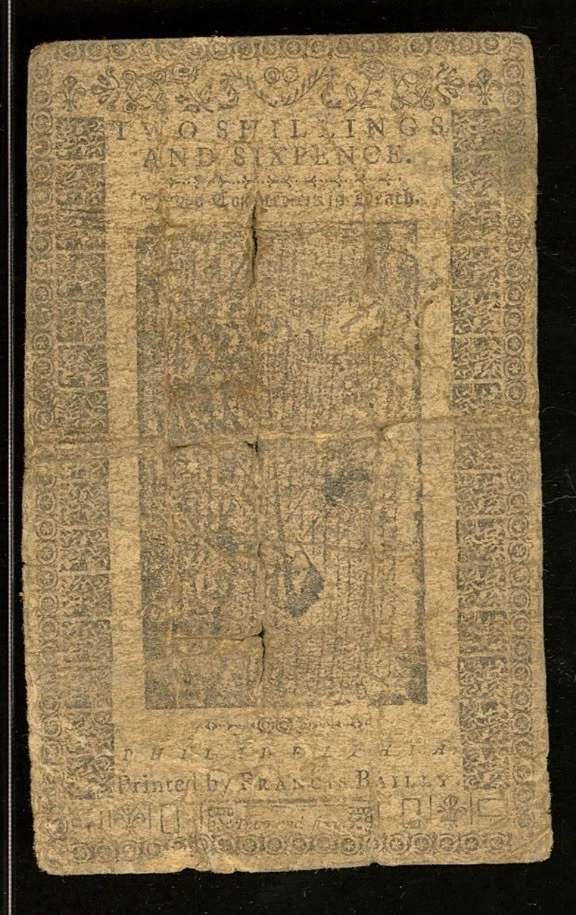 TWO SHILLINGS
AND SIXPENCE.
to Counterfeit is Death.
PHILADELPHIA
Printed by FRANCIS BAILEY.